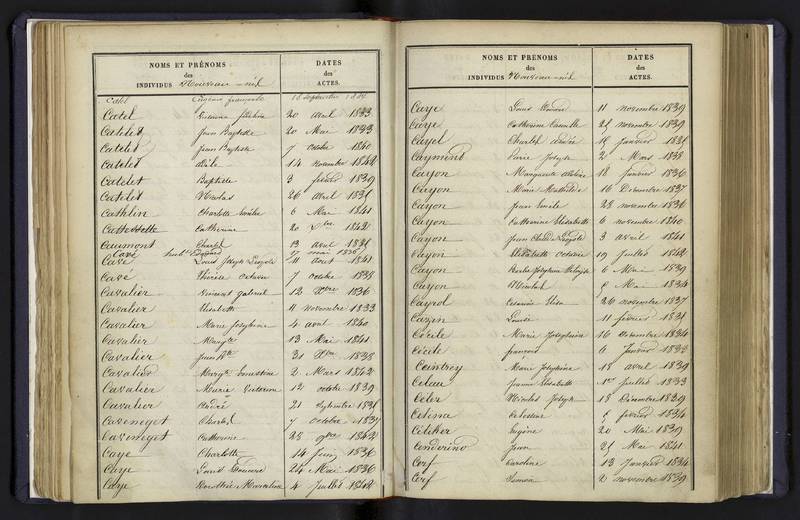 NOMS ET PRÉNOMS
des
INDIVIDUS Nouveau-né
DATES
des
ACTES.
Catel Eugène françois 18 septembre 1834
Catel 20 avril 1833
Catelet Jean Baptiste 20 Mai 1833
Catelet Jean Baptiste 7 octobre 1840
Catelet Adèle 14 novembre 1842
Catelet Baptiste 3 février 1839
Catelet Nicolas 26 avril 1831
Cathlin Charlotte Emilie 6 Mai 1841
Catherine 20 Xbre 1842
Caumont Charles 13 avril 1831
Cavé Edouard 27 mai 1836
Cavé Louis Joseph Léopold août 1841
Cavé Thérèse Octavie 7 octobre 1838
Cavalier Vincent gabriel 12 Xbre 1836
Cavalier Elisabeth 11 novembre 1833
Cavalier Marie Joséphine 4 avril 1840
Cavalier Margte 13 Mai 1841
Cavalier Jean Bte 31 Xbre 1838
Cavalier Margte Ernestine 2 Mars 1842
Cavalier Marie Victorine 12 octobre 1839
Cavalier André 21 septembre 1831
Cavenegot Charles 7 octobre 1837
Cavenegot Catherine 28 9bre 1842
Caye Charlotte 14 Juin 1836
Caye Louis Edouard 24 Mai 1836
Caye Dorothée Marceline 4 Juillet 1842
NOMS ET PRENOMS
des
INDIVIDUS Nouveau-né
DATES
des
ACTES.
Caye Louis Edouard 11 novembre 1839
Caye Catherine Camille 25 novembre 1839
Cayel Charles André 15 janvier 1831
Caymont Pierre Joseph 2 Mars 1838
Cayon Marguerite 18 janvier 1836
Cayon Marie Mathilde 16 Décembre 1837
Cayon Jean Emile 28 novembre 1836
Cayon Catherine Elisabeth 6 novembre 1840
Cayon Jean Claude Léopold 3 avril 1841
Cayon Elisabeth Octavie 19 juillet 1842
Cayon Joséphine 6 Mai 1839
Cayon Nicolas 8 Mai 1834
Cayrol Césarine Elisa 26 novembre 1837
Cazin Louise 11 février 1831
Cécile Marie Joséphine 16 Décembre 1834
Cécile françois 6 Janvier 1833
Ceintrey Marie Joséphine 18 avril 1839
Jeanne Elisabeth 1er juillet 1833
Nicolas Joseph 18 Décembre 1839
Célestine février 1834
Céliker Eugène 20 Mai 1839
Cenderino Jean 25 Mai 1841
Cerf Caroline 13 Janvier 1834
Cerf Simon 2 novembre 1839